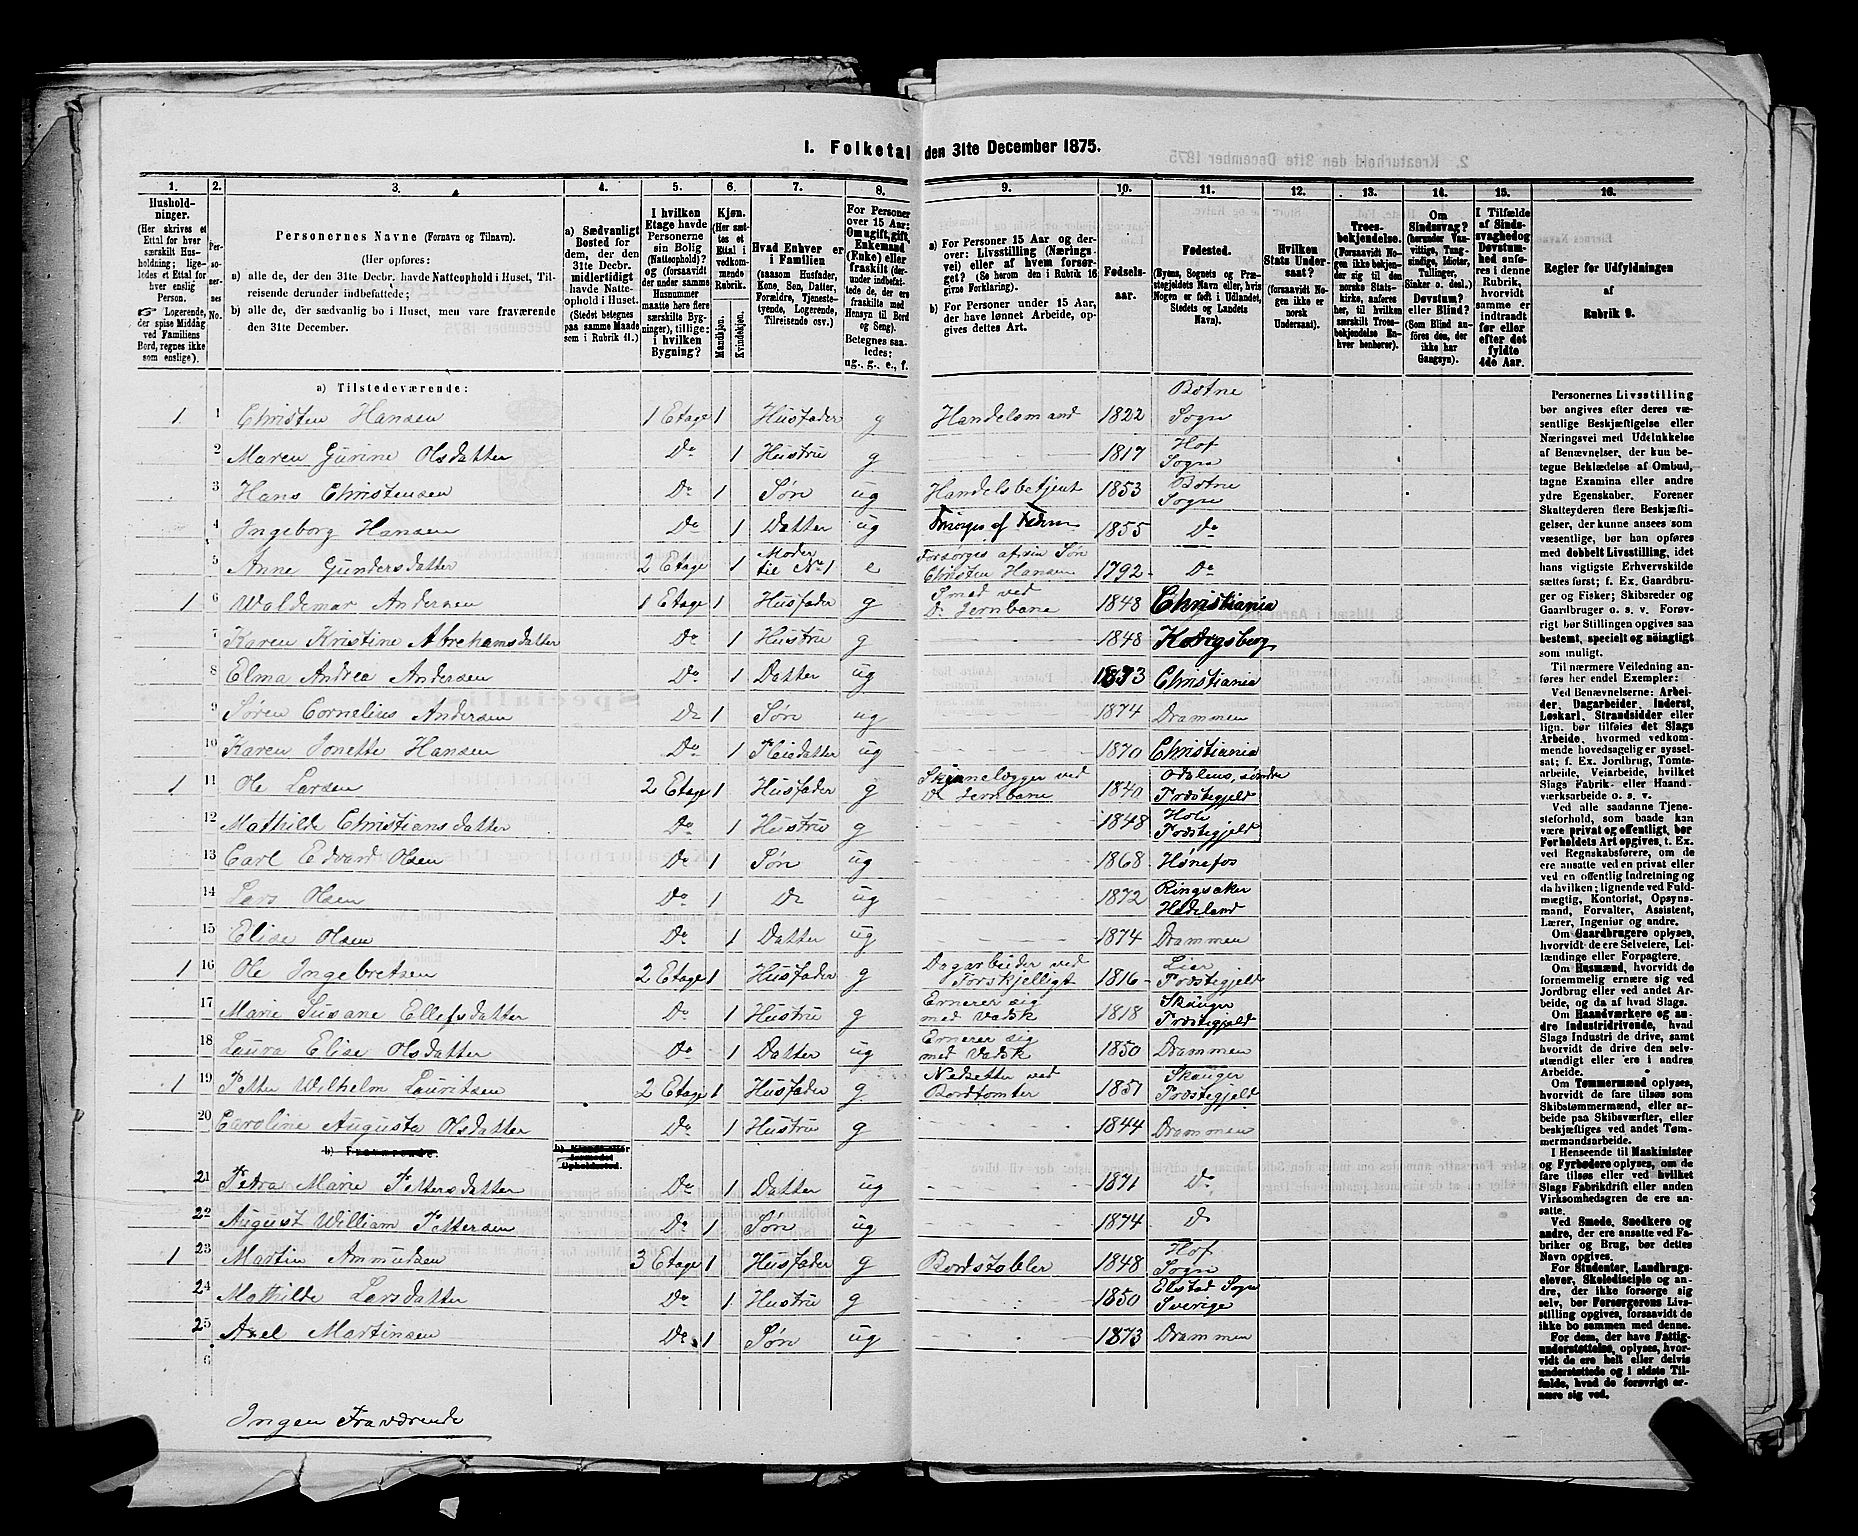 1. Folketal den 31te December 1875.
1. 2. 3. 4. 5. 6. 7. 8. 9. 10. 11. 12. 13. 14. 15. 16.
Hushold-
ninger.
(Her skrives et
Ettal for hver
særskilt Hus-
holdning; lige-
ledes et Ettal for
hver enslig
Person.
Logerende,
der spise Middag
ved Familiens
Bord, regnes ikke
som enslige).
Per-
so-
ner-
nes
No.
Personernes Navne (Fornavn og Tilnavn).
(Her opføres:
a) alle de, der den 31te Decbr. havde Natteophold i Huset, Til-
reisende derunder indbefattede;
b) alle de, der sædvanlig bo i Huset, men vare fraværende
den 31te December.
a) Sædvanligt
Bosted for
dem, der den
31te Decbr.
midlertidigt
havde Natte-
ophold i Huset.
(Stedet betegnes
paa samme Maade
som i Rubrik 11.)
I hvilken
Etage havde
Personerne
sin Bolig
(Natteophold)?
og (forsaavidt
der under samme
Husnummer
maatte høre flere
særskilte Byg-
ninger), tillige:
i hvilken
Bygning?
Kjøn.
(Her sæt-
tes et
Ettal i
vedkom-
mende
Rubrik.
Mandkjøn.
Kvindekjøn.
Hvad Enhver er
i Familien
(saasom Husfader,
Kone, Søn, Datter,
Forældre, Tjeneste-
tyende, Logerende,
Tilreisende osv.)
For Personer
over 15 Aar:
Om ugift, gift,
Enkemand
(Enke) eller
fraskilt (der-
under indbefat-
tede de, der ere
fraskilte med
Hensyn til Bord
og Seng).
Betegnes saa-
ledes:
ug., g., e., f.
a) For Personer 15 Aar og der-
over: Livsstilling (Nærings-
vei) eller af hvem forsør-
get? (Se herom den i Rubrik 16
givne Forklaring).
b) For Personer under 15 Aar,
der have lønnet Arbeide, op-
gives dettes Art.
Fødsels-
aar.
Fødested.
(Byens, Sognets og Præ-
stegjeldets Navn eller, hvis
Nogen er født i Udlandet,
Stedets og Landets
Navn).
Hvilken
Stats Under-
saat?
(forsaavidt No-
gen ikke er
norsk
Undersaat).
Troes-
bekjendelse.
(Forsaavidt No-
gen ikke bekjen-
der sig til den
norske Stats-
kirke, anføres
her, til hvilken
særskilt Troes-
bekjendelse En-
hver henhører).
Om
Sindssvag?
(herunder Van-
vittige, Tung-
sindige, Idioter,
Tullinger,
Sinker o. desl.)
Døvstum?
eller Blind?
(Som Blind an-
føres den, der
ikke har
Gangsyn).
I Tilfælde
af Sinds-
svaghed og
Døvstum-
hed anfø-
res i denne
Rubrik,
hvorvidt
samme er
indtraadt
før eller
efter det
fyldte
4de Aar.
Regler for Udfyldningen
af
Rubrik 9.
a) Tilstedeværende:
1 1 Christen Hansen 1 Etage 1 Husfader g Handelsmand 1822 Botne Sogn
2 Maren Gurine Olsdatter Do 1 Hustru g 1817 Hof Sogn
3 Hans Christensen Do 1 Søn ug Handelsbetjent 1853 Botne Sogn
4 Ingeborg Hansen Do 1 Datter ug Forsørges af Faderen 1855 Do
5 Anne Gundersdatter 2 Etage 1 Moder til No 1 e Forsørges af sin Søn Christen Hansen 1792 Do
1 6 Waldemar Andersen 1 Etage 1 Husfader g Smed ved D. Jernbane 1848 Christiania
7 Karen Kristine Abrehamsdatter Do 1 Hustru g 1848 Kongsberg
8 Elma Andrea Andersen Do 1 Datter ug 1873 Christiania
9 Søren Cornelius Andersen Do 1 Søn ug 1874 Drammen
10 Karen Jonette Hansen Do 1 Pleiedatter ug 1870 Christiania
1 11 Ole Larsen 2 Etage 1 Husfader g Skinnelægger ved D. Jernbane 1840 Odalens, søndre Præstegjeld
12 Mathilde Christiansdatter Do 1 Hustru g 1848 Hole Præstegjeld
13 Carl Edvard Olsen Do 1 Søn ug 1868 Hønefos
14 Lars Olsen Do 1 Do ug 1872 Ringsaker Hedeland
15 Elise Olsen Do 1 Datter ug 1874 Drammen
1 16 Ole Ingebretsen 2 Etage 1 Husfader g Dagarbeider ved Forskjelligt 1816 Lier Præstegjeld
17 Marie Susane Ellefsdatter Do 1 Hustru g Ernerer sig med Vadsk 1818 Skauger Præstegjeld
18 Laura Elise Olsdatter Do 1 Datter ug Ernerer sig med Vadsk 1850 Drammen
1 19 Petter Wilhelm Lauritsen 2 Etage 1 Husfader g Nedsetter ved Bordtomter 1851 Skauger Præstegjeld
20 Caroline Augusta Olsdatter Do 1 Hustru g 1844 Drammen
b) Fraværende
21 Petra Marie Pettersdatter Do 1 Datter ug 1871 Do
22 August William Pettersen Do 1 Søn ug 1874 Do
1 23 Martin Ammudsen 3 Etage 1 Husfader g Bordstabler 1848 Hof Sogn
24 Mathilde Larsdatter Do 1 Hustru g 1850 Ekstad Sogn Sverige
25 Axel Martinsen Do 1 Søn ug 1873 Drammen
6
Ingen Fraværende
Personernes Livsstilling
bør angives efter deres væ-
sentlige Beskjæftigelse eller
Næringsvei med Udelukkelse
af Benævnelser, der kun be-
tegne Beklædelse af Ombud,
tagne Examina eller andre
ydre Egenskaber. Forener
Skatteyderen flere Beskjæfti-
gelser, der kunne ansees som
væsentlige, bør han opføres
med dobbelt Livsstilling, idet
hans vigtigste Erhvervskilde
sættes først; f. Ex. Gaardbru-
ger og Fisker; Skibsreder og
Gaardbruger o. s. v. Forøv-
rigt bør Stillingen opgives saa
bestemt, specielt og nøiagtigt
som muligt.
Til nærmere Veiledning an-
føres her endel Exempler:
Ved Benævnelserne: Arbei-
der, Dagarbeider, Inderst,
Løskarl, Strandsidder eller
lign. bør tilføies det Slags
Arbeide, hvormed vedkom-
mende hovedsagelig er syssel-
sat; f. Ex. Jordbrug, Tomte-
arbeide, Veiarbeide, hvilket
Slags Fabrik- eller Haand-
værksarbeide o. s. v.
Ved alle saadanne Tjene-
steforhold, som baade kan
være privat og offentligt, bør
Forholdets Art opgives, t. Ex.
ved Regnskabsførere, om de
ere ansatte ved en privat eller
ved en offentlig Indretning og
da hvilken; lignende ved Fuld-
mægtig, Kontorist, Opsyns-
mand, Forvalter, Assistent,
Lærer, Ingeniør og andre.
Om Gaardbrugere oplyses,
hvorvidt de ere Selveiere, Lei-
lændinge eller Forpagtere.
Om Husmænd, hvorvidt de
fornemmelig ernære sig ved
Jordbrug eller ved andet Ar-
beide, og da af hvad Slags.
Om Haandværkere og an-
dre Industridrivende, hvad
Slags Industri de drive, samt
hvorvidt de drive den selv-
stændigt eller ere i andres
Arbeide.
Om Tømmermænd oplyses,
hvorvidt de fare tilsøs som
Skibstømmermænd, eller ar-
beide paa Skibsværfter, eller
beskjæftiges ved andet Tøm-
mermandsarbeide.
I Henseende til Maskinister
og Fyrbødere oplyses, om de
fare tilsøs eller ved hvilket
Slags Fabrikdrift eller anden
Virksomhedsgren de ere an-
satte.
Ved Smede, Snedkere og
andre, der ere ansatte ved Fa-
briker og Brug, bør dettes
Navn opgives.
For Studenter, Landbrugs-
elever, Skoledisciple og an-
dre, der ikke forsørge sig
selv, bør Forsørgerens Livs-
stilling opgives, forsaavidt de
ikke bo sammen med denne.
For dem, der have Fattig-
understøttelse, oplyses, hvor-
vidt de ere helt eller delvis
understøttede og i sidste Til-
fælde, hvad de forøvrigt er-
nære sig ved.